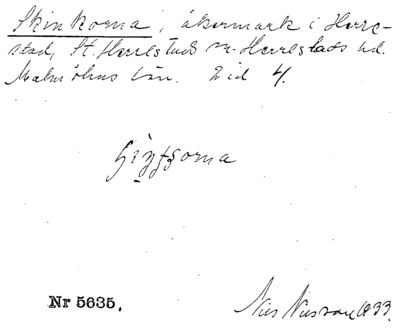 Skinkorna, åkermark i Herre-
stad, St. Herrestads sn. Herrestads hd.
Malmöhus län. 2 id 4.
Nr 5635.
Nils Nilsson 1933.